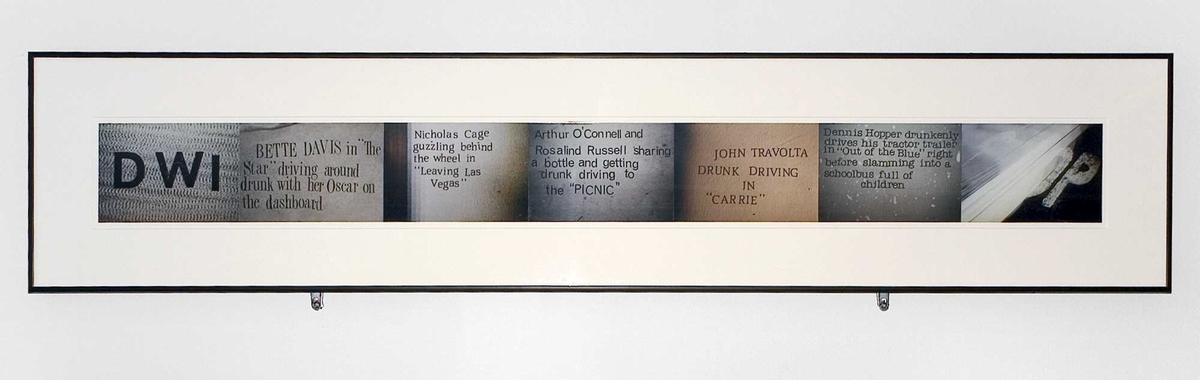 DWI
BETTE DAVIS in "The
Star" driving around
drunk with her Oscar on
the dashboard
Nicholas Cage
guzzling behind
the wheel in
"Leaving Las
Vegas"
Arthur O'Connell and
Rosalind Russell sharing
a bottle and getting
drunk driving to
the "PICNIC"
JOHN TRAVOLTA
DRUNK DRIVING
IN
"CARRIE"
Dennis Hopper drunkenly
drives his tractor trailer
in "Out of the Blue" right
before slamming into a
schoolbus full of
children